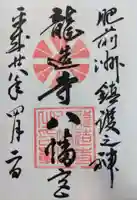 肥前州鎮護之神
龍造寺
八幡宮
平成廿八年四月二日